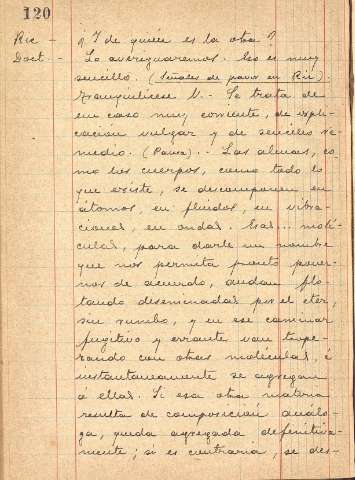 120
Ric – ¿Y de quién es la otra?
Doct. – Lo averiguaremos. Eso es muy
sencillo. (Señales de pavor en Ric).
Tranquilícese V. – Se trata de
un caso muy corriente, de expli-
cación vulgar y de sencillo re-
medio. (Pausa). – Las almas, co
mo los cuerpos, como todo lo
que existe, se descomponen en
átomos, en fluidos, en vibra-
ciones, en ondas. Esas... molé-
culas, para darle un nombre
que nos permita pronto poner-
nos de acuerdo, andan flo-
tando diseminadas por el éter,
sin rumbo, y en ese caminar
fugitivo y errante van trope-
rando con otras moléculas, é
instantaneamente se agregan
á ellas. Si esa otra materia
resulta de composición análo-
ga, queda agregada definitiva-
mente; si es contraria, se des-